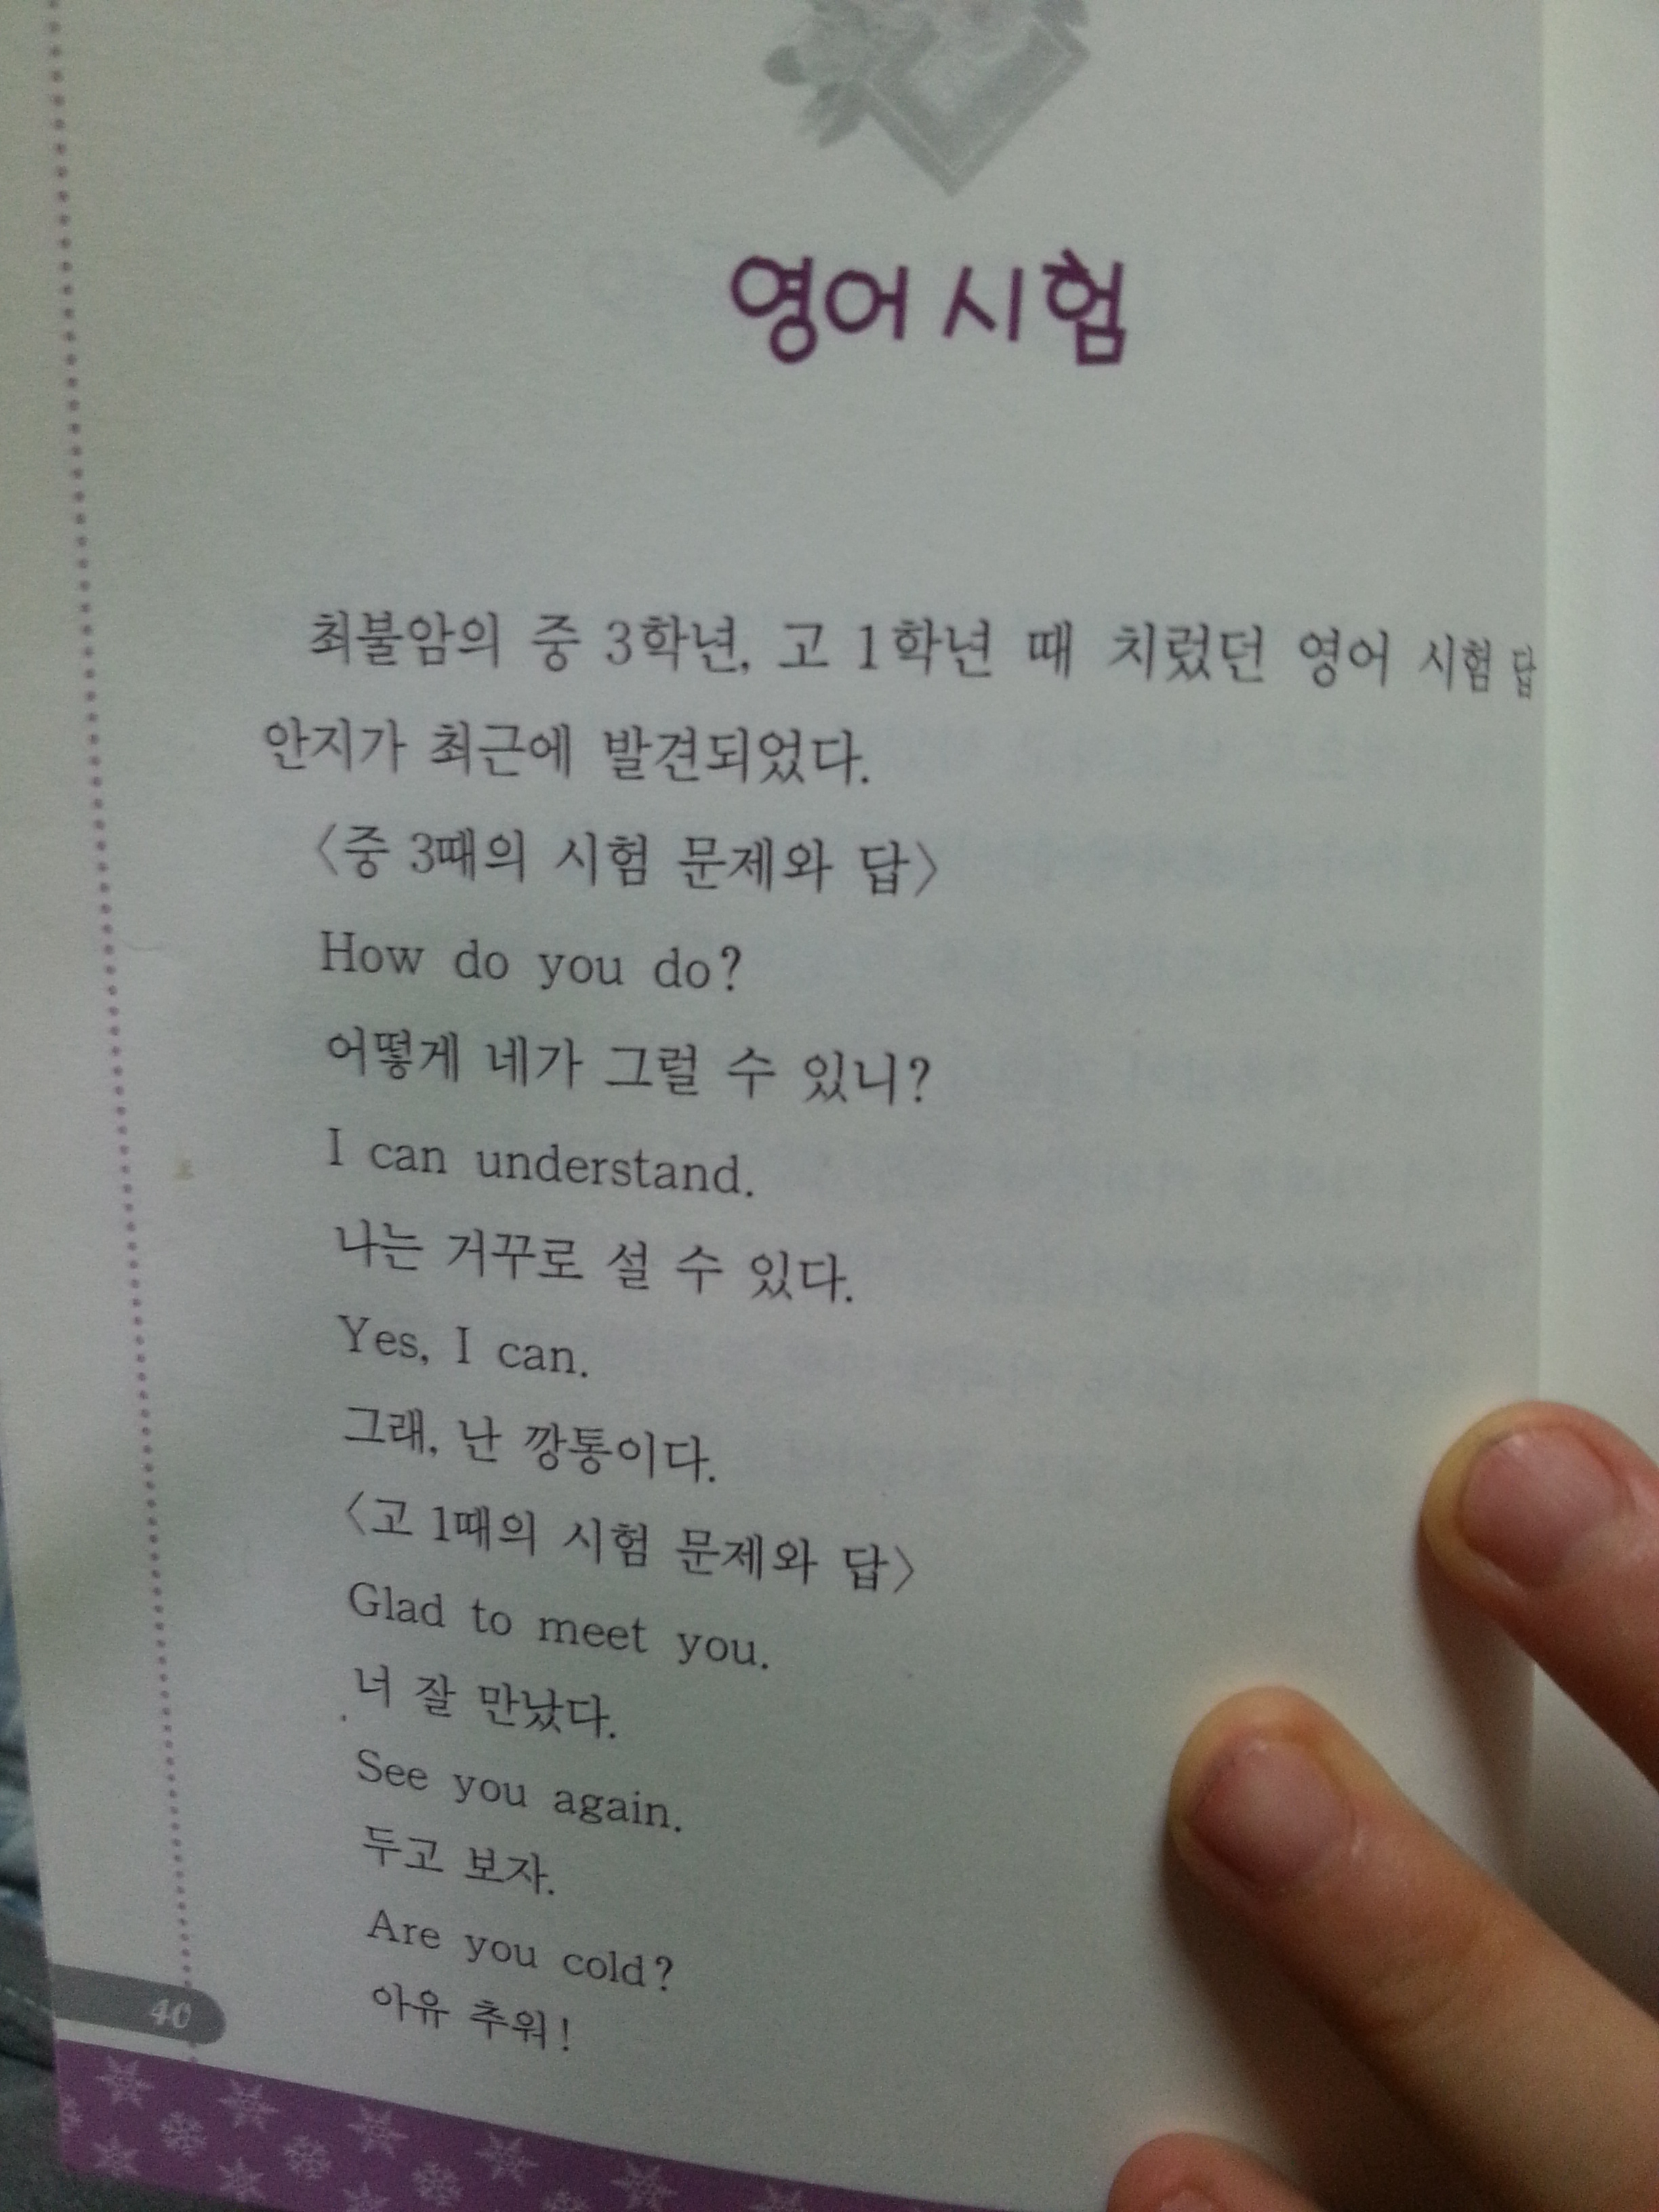 영어 시험
최불암의 중 3학년, 고 1학년 때 치렀던 영어 시험 답
안지가 최근에 발견되었다.
〈중 3때의 시험 문제와 답〉
How do you do?
어떻게 네가 그럴 수 있니?
I can understand.
나는 거꾸로 설 수 있다.
Yes, I can.
그래, 난 깡통이다.
〈고 1때의 시험 문제와 답〉
Glad to meet you.
너 잘 만났다.
See you again.
두고 보자.
Are you cold?
아유 추워!
40